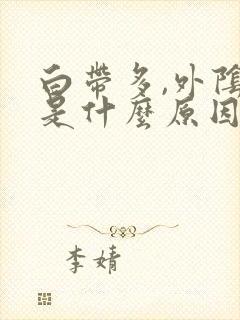 白帶多,外陰
是什麼原因
李婧